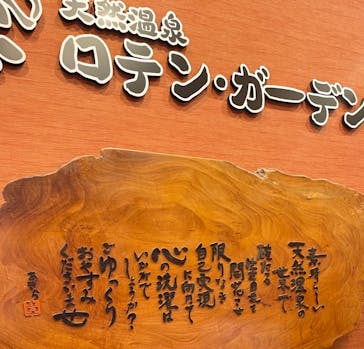 天然温泉
ロテン・ガーデン
素晴しい
天然温泉の
世界で
限りなき
自己実現
に向けて
心の洗濯は
いかがで
しょうか?
ごゆっくり
おすすみ
くださいませ